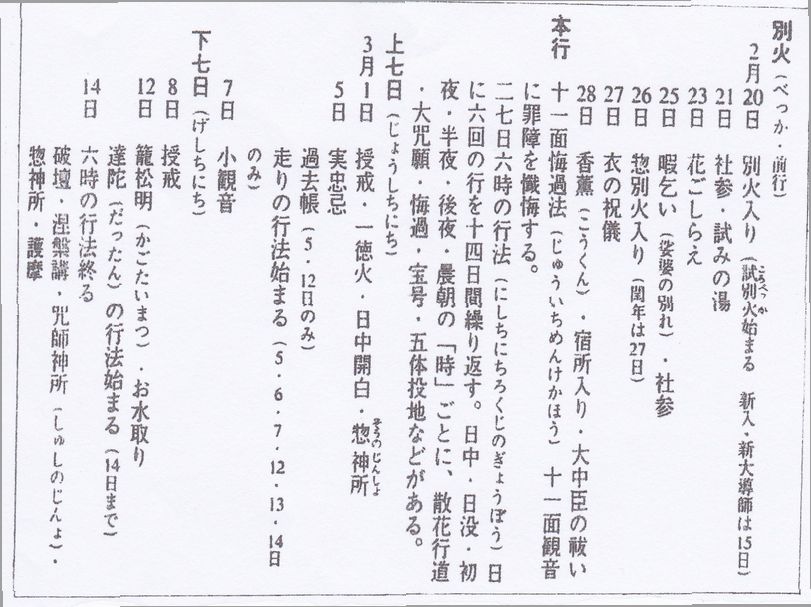 別火（べっか・前行）
2月20日　別火入り（試別火始まる　新入・新大導師は15日）
こべっか
21日　社参・試みの湯
23日　花ごしらえ
25日　暇乞い（娑婆の別れ）・社参
26日　惣別火入り（閏年は27日）
27日　衣の祝儀
28日　香薫（こうくん）・宿所入り・大中臣の祓い
本行　十一面悔過法（じゅういちめんけかほう）　十一面観音
に罪障を懺悔する。
二七日六時の行法（にしちにちろくじのぎょうぼう）日
に六回の行を十四日間繰り返す。日中・日没・初
夜・半夜・後夜・晨朝の「時」ごとに、散花行道
・大咒願・悔過・宝号・五体投地などがある。
上七日（じょうしちにち）
3月1日　授戒・一徳火・日中開白・惣神所
そうのじんしょ
5日　実忠忌
過去帳（5・12日のみ）
走りの行法始まる（5・6・7・12・13・14日
のみ）
7日　小観音
下七日（げしちにち）
8日　授戒
12日　籠松明（かごたいまつ）・お水取り
達陀（だったん）の行法始まる（14日まで）
14日　六時の行法終る
破壇・涅槃講・咒師神所（しゅしのじんょ）・
惣神所・護摩